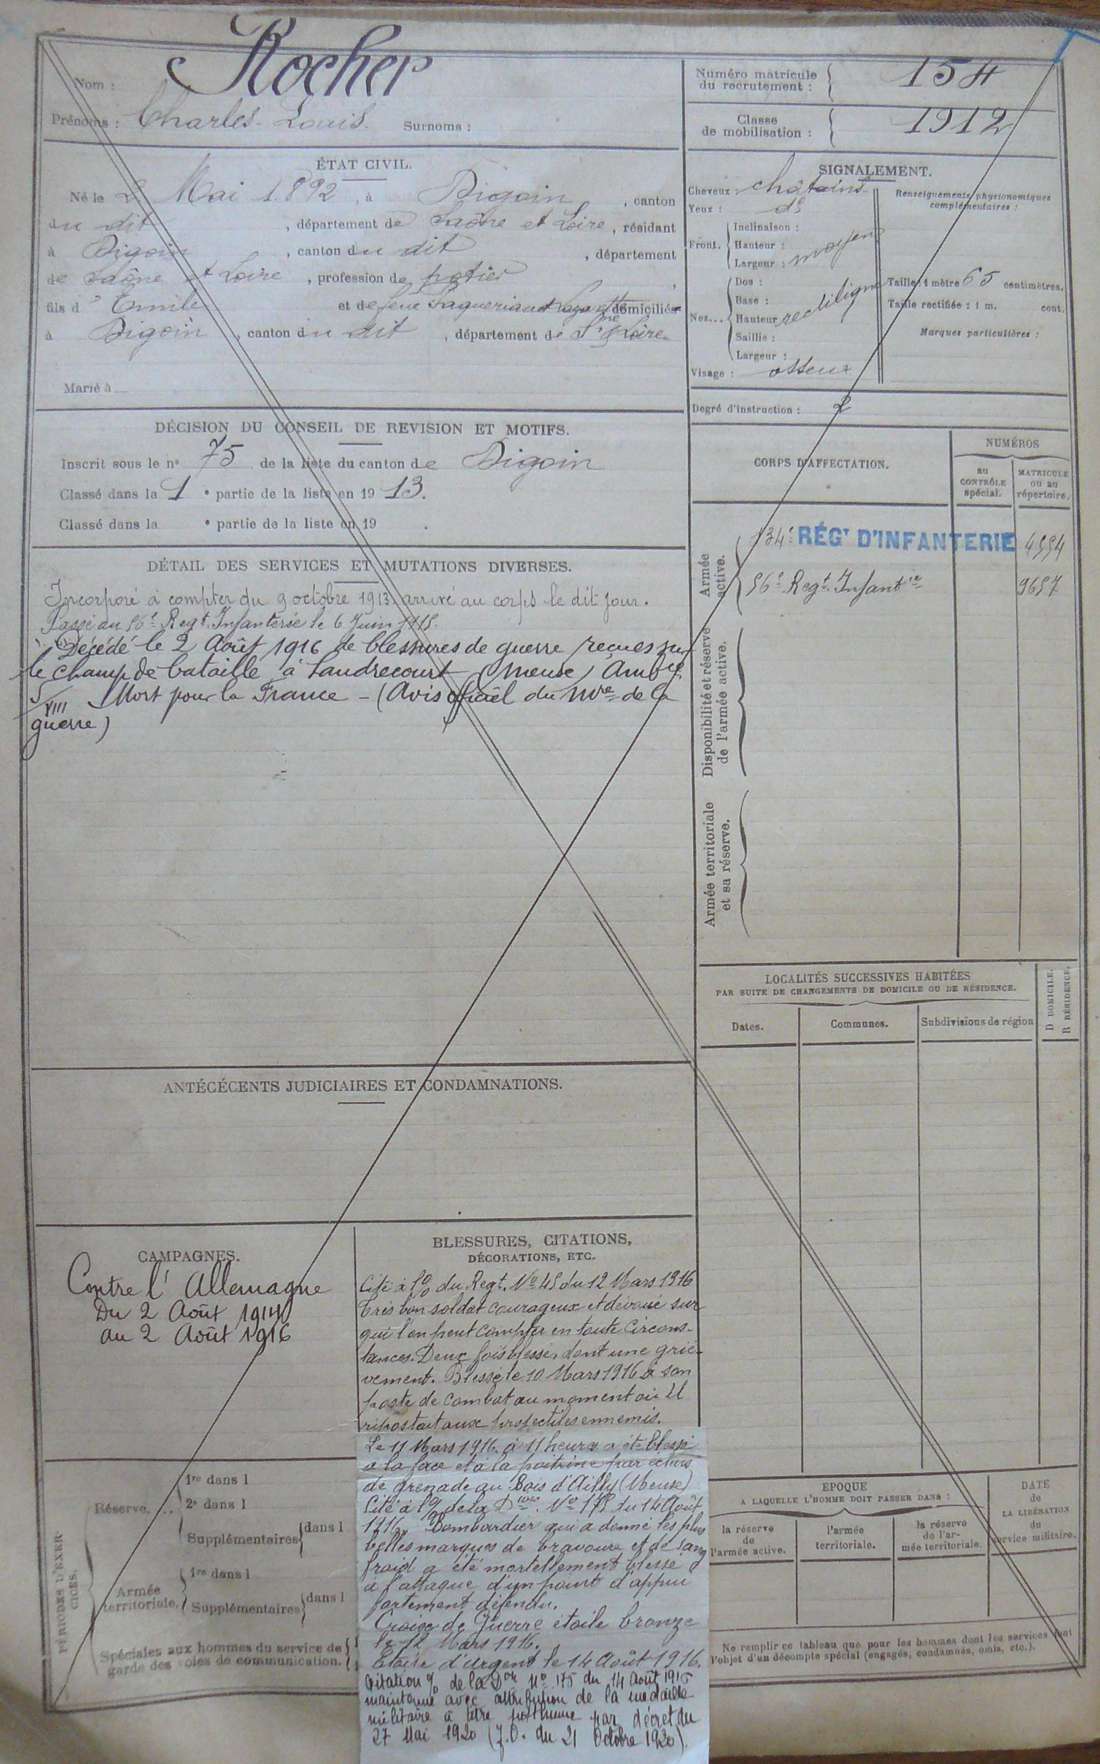 Nom : Rocher
Prénoms : Charles-Louis. Surnoms :
Numéro matricule du recrutement : 154
Classe de mobilisation : 1912
ÉTAT CIVIL.
Né le 2 Mai 1892, à Digoin, canton
du dit, département de Saône et Loire, résidant
à Digoin, canton du dit, département
de Saône et Loire, profession de potier,
fils d'Emile et de feue domiciliés
à Digoin, canton du dit, département de S. Loire.
Marié à
SIGNALEMENT.
Cheveux : châtains
Yeux : do
Front. Inclinaison :
Hauteur :
Largeur : moyen
Nez... Dos :
Base :
Hauteur rectiligne
Saillie :
Largeur :
Visage : osseux
Renseignements physionomiques complémentaires :
Taille : 1 mètre 65 centimètres.
Taille rectifiée : 1 m. cent.
Marques particulières :
Degré d'instruction : 2
DÉCISION DU CONSEIL DE REVISION ET MOTIFS.
Inscrit sous le no 75 de la liste du canton de Digoin
Classé dans la 1e partie de la liste en 1913.
Classé dans la e partie de la liste en 19 .
CORPS D'AFFECTATION.
NUMÉROS
au CONTRÔLE spécial.
MATRICULE ou au répertoire.
Armée active.
134e RÉGt D'INFANTERIE 4554
56e Regt. Infantrie 9657
Disponibilité et réserve de l'armée active.
Armée territoriale et sa réserve.
DÉTAIL DES SERVICES ET MUTATIONS DIVERSES.
Incorporé à compter du 9 octobre 1913 arrivé au corps le dit jour.
Passé au 56e Regt. Infanterie le 6 Juin 1915.
Décédé le 2 Août 1916 de blessures de guerre reçues sur
le champ de bataille à Landrecourt (Meuse) Ambce
5/VIII Mort pour la France - (Avis officiel du Mre de la
guerre)
LOCALITÉS SUCCESSIVES HABITÉES
PAR SUITE DE CHANGEMENTS DE DOMICILE OU DE RÉSIDENCE.
Dates.
Communes.
Subdivisions de région
D DOMICILE.
R RÉSIDENCE.
ANTÉCÉCENTS JUDICIAIRES ET CONDAMNATIONS.
CAMPAGNES.
Contre l'Allemagne
Du 2 Août 1914
au 2 Août 1916
BLESSURES, CITATIONS,
DÉCORATIONS, ETC.
Cité à l'o/o du Regt. No 45 du 12 Mars 1916
Très bon soldat courageux et dévoué sur
qui l'on peut compter en toute circons-
tances. Deux fois blessé, dont une griè-
vement. Blessé le 10 Mars 1916 à son
poste de combat au moment où il
ripostait aux projectiles ennemis.
Le 11 Mars 1916 à 11 heures a été blessé
à la face et à la poitrine par éclats
de grenade au Bois d'Ailly (Meuse)
Cité à l'o/o de la Don No 175 du 14 Août
1916. Bombardier qui a donné les plus
belles marques de bravoure et de sang
froid a été mortellement blessé
à l'attaque d'un point d'appui
fortement défendu.
Croix de Guerre étoile bronze
le 12 Mars 1916.
Etoile d'argent le 14 Août 1916.
Citation o/o de la Don No 175 du 14 Août 1916
maintenue avec attribution de la médaille
militaire à titre posthume par décret du
27 Mai 1920 (J.O. du 21 Octobre 1920).
PÉRIODES D'EXERCICES.
Réserve.
1re dans l
2e dans l
Supplémentaires dans l
Armée territoriale.
1re dans l
Supplémentaires dans l
Spéciales aux hommes du service de
garde des voies de communication.
EPOQUE
A LAQUELLE L'HOMME DOIT PASSER DANS :
la réserve de l'armée active.
l'armée territoriale.
la réserve de l'armée territoriale.
DATE de LA LIBÉRATION du service militaire.
Ne remplir ce tableau que pour les hommes dont les services font
l'objet d'un décompte spécial (engagés, condamnés, omis, etc.).